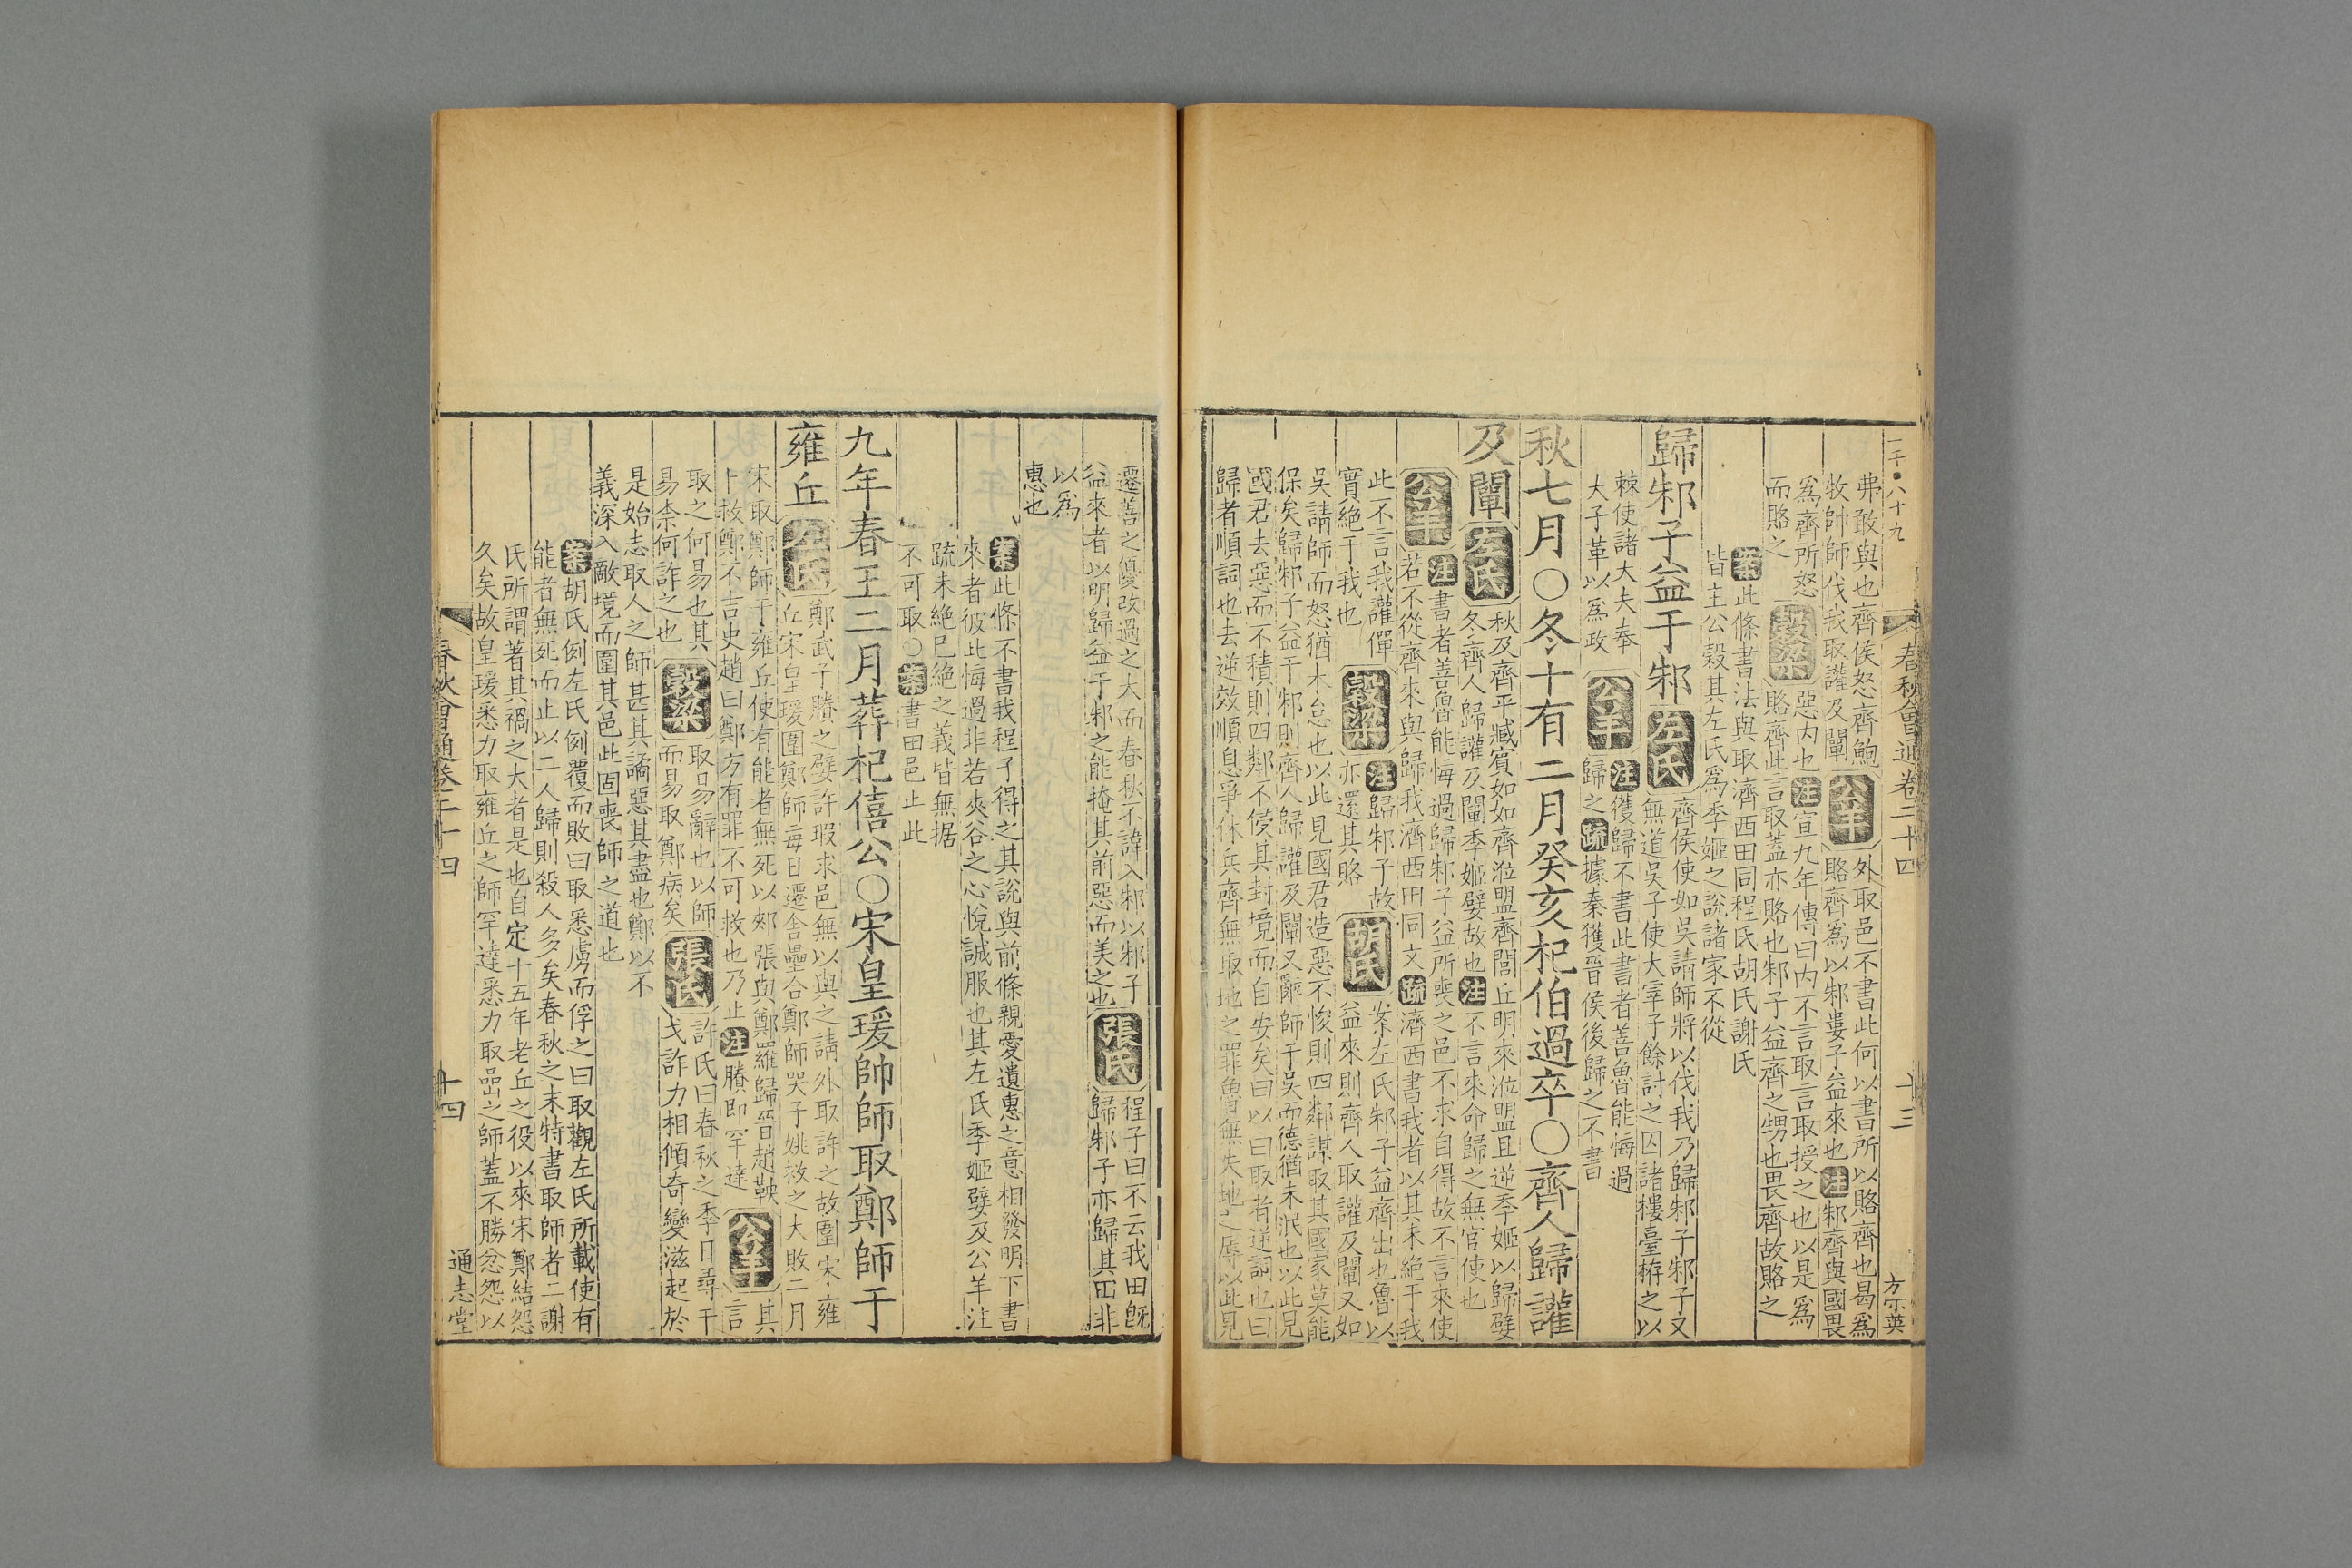 二千●八十九
春秋會通卷二十四
十三
方不英
弗敢與也齊侯怒齊鮑
牧帥師伐我取讙及闡
公羊
外取邑不書此何以書所以賂齊也曷爲
賂齊爲以邾婁子益來也注邾齊與國畏
爲齊所怒
而賂之
穀梁
惡内也注宣九年傳曰内不言取言取授之也以是爲
賂齊此言取蓋亦賂也邾子益齊之甥也畏齊故賂之
案此條書法與取濟西田同程氏胡氏謝氏
皆主公穀其左氏爲季姬之說諸家不從
歸邾子益于邾
左氏
齊侯使如吳請師將以伐我乃歸邾子邾子又
無道吳子使大宰子餘討之囚諸樓臺栫之以
棘使諸大夫奉
大子革以爲政
公羊
注獲歸不書此書者善魯能悔過
歸之疏據秦獲晋侯後歸之不書
秋七月○冬十有二月癸亥杞伯過卒○齊人歸讙
及闡
左氏
秋及齊平臧賓如如齊涖盟齊閭丘明來涖盟且逆季姬以歸嬖
冬齊人歸讙及闡季姬嬖故也注不言來命歸之無官使也
公羊
注書者善魯能悔過歸邾子益所喪之邑不求自得故不言來使
若不從齊來與歸我濟西田同文疏濟西書我者以其未絶于我
此不言我讙僤
實絶于我也
穀梁
注歸邾子故
亦還其賂
胡氏
案左氏邾子益齊出也魯以
益來則齊人取讙及闡又如
吳請師而怒猶未怠也以此見國君造惡不悛則四鄰謀取其國家莫能
保矣歸邾子益于邾則齊人歸讙及闡又辭師于吳而德猶未泯也以此見
國君去惡而不積則四鄰不侵其封境而自安矣曰以曰取者逆詞也曰
歸者順詞也去逆效順息爭休兵齊無取地之罪魯無失地之辱以此見
遷善之優改過之大而春秋不諱入邾以邾子
益來者以明歸益于邾之能掩其前惡而美之也
張氏
程子曰不云我田旣
歸邾子亦歸其田非
以爲
惠也
案此條不書我程子得之其說與前條親愛遺惠之意相發明下書
來者彼此悔過非若夾谷之心悅誠服也其左氏季姬嬖及公羊注
疏未絶已絶之義皆無据
不可取○案書田邑止此
九年春王二月葬杞僖公○宋皇瑗帥師取鄭師于
雍丘
左氏
鄭武子賸之嬖許瑕求邑無以與之請外取許之故圍宋雍
丘宋皇瑗圍鄭師每日遷舍壘合鄭師哭子姚救之大敗二月
宋取鄭師于雍丘使有能者無死以郟張與鄭羅歸晉趙鞅
卜救鄭不吉史趙曰鄭方有罪不可救也乃止注賸即罕達
公羊
其
言
取之何易也其
易柰何詐之也
穀梁
取易辭也以師
而易取鄭病矣
張氏
許氏曰春秋之季日尋干
戈詐力相傾奇變滋起於
是始志取人之師甚其譎惡其盡也鄭以不
義深入敵境而圍其邑此固喪師之道也
案胡氏例左氏例覆而敗曰取悉虜而俘之曰取觀左氏所載使有
能者無死而止以二人歸則殺人多矣春秋之末特書取師者二謝
氏所謂著其禍之大者是也自定十五年老丘之役以來宋鄭結怨
久矣故皇瑗悉力取雍丘之師罕達悉力取嵒之師蓋不勝忿怨以
春秋會通卷二十四
十四
通志堂